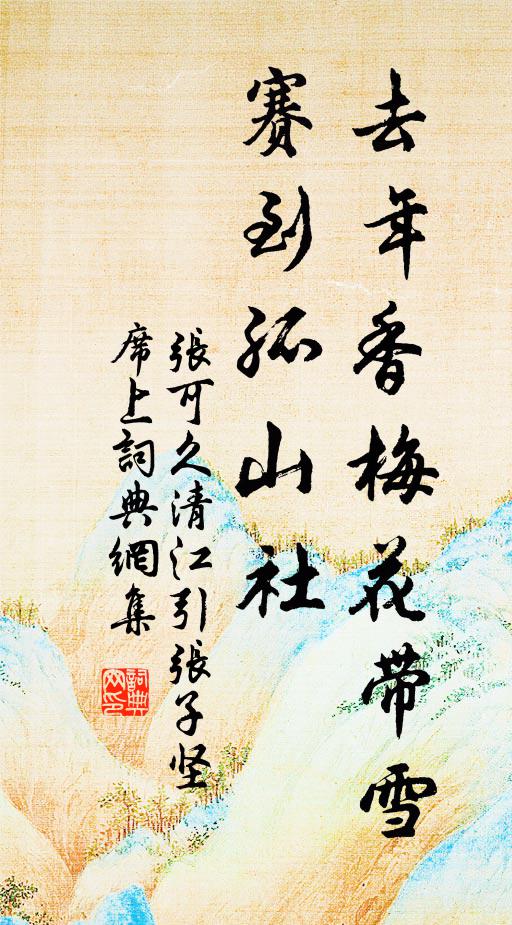 去年香梅花带雪
赛到孤山社
張可久清江引張子坚
席上詞典網集
詞典网印